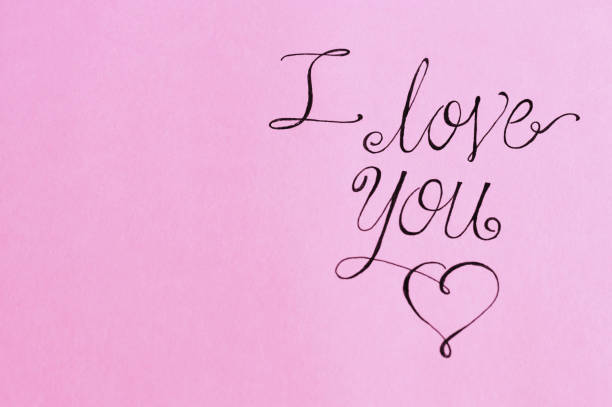 I love
You